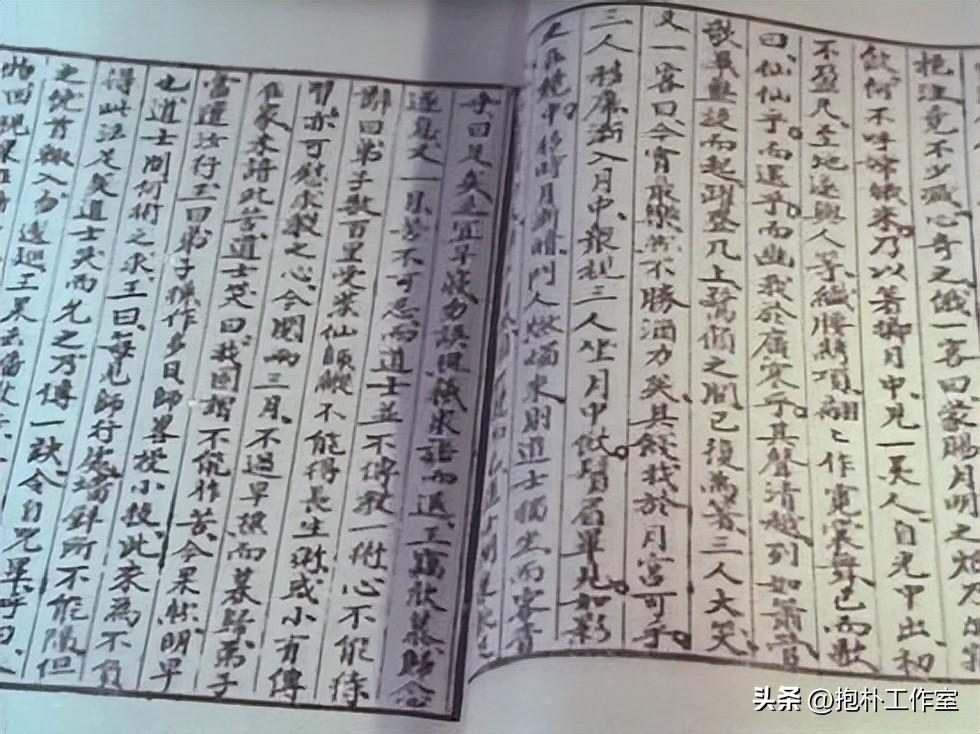 挹注竟不少減心奇之俄一客曰蒙賜月明之炤
飲何不呼嫦娥來乃以箸擲月中見一美人自光中出初
不盈尺至地遂與人等纖腰綉項翩ヒ作霓裳舞已而歌
曰仙仙乎而還乎而幽我於廣寒乎其聲清越列如簫管
歌畢盤旋而起躍登几上驚顧之間已復為箸三人大笑
又一客曰今宵最樂然不勝酒力矣其餞我於月宮可乎
三人移席漸入月中衆視三人坐月中飲鬚眉畢見如影
之在鏡中移時月漸暗門人燃燭來則道士獨坐而客杳
乎曰足矣足宜早寢勿誤樵蘇衆諾而退王竊欣慕歸念
遂息又一月苦不可忍而道士並不傳教一術心不能待
辭曰弟子數百里受業仙師縱不能得長生術或小有傳
習亦可慰求教之心今閱兩三月不過早樵而暮歸弟子
在家未諳此苦道士笑曰我固謂不能作苦今果然明早
當遣汝行王曰弟子操作多日師畧授小技此來為不負
也道士問何術之求王曰每見師行處墻壁所不能隔但
得此法足矣道士笑而允之乃傳一訣令自咒畢呼曰入
之俛首輙入勿逡巡王果去墻數步
头条 @抱朴工作室